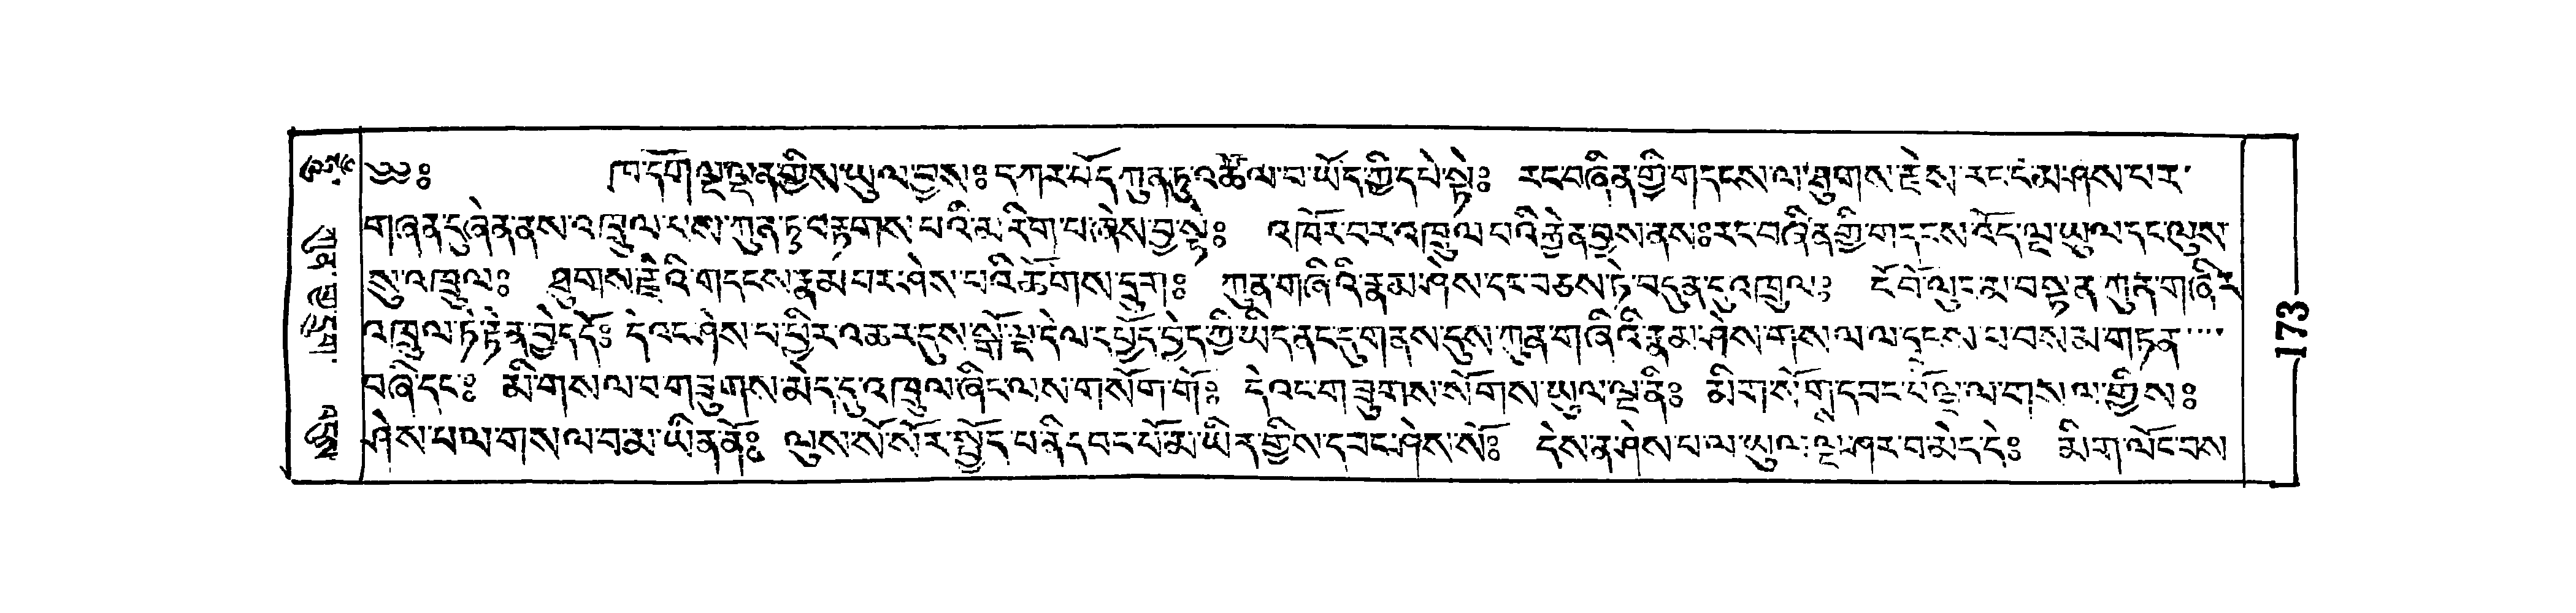 ༄༅༔ ཁ་དོག་ལྔ་ལྡན་གྱིས་ཡུལ་བྱས༔ དཀར་པོད་ཀུན་ཏུ་འཚོལ་བ་ཡོད་ཀྱི་དཔེ་སྟེ༔ རང་བཞིན་གྱི་གདངས་ལ་ཐུགས་རྗེས་རང་ངམ་ཤས་པར་
གཞན་དུ་ཞེན་ནས་འཁྲུལ་པས་ཀུན་ཏུ་བརྟགས་པའི་མ་རིག་པ་ཞེས་བྱ་སྟེ༔ འཁོར་བར་འཁྲུལ་པའི་རྐྱེན་བྱས་ནས༔རང་བཞིན་གྱི་གདངས་འོད་ལྔ་ཡུལ་དང་ལུས་
སུ་འཁྲུལ༔ ཐུགས་རྗེའི་གདངས་རྣམ་པར་ཤེས་པའི་ཚོགས་དྲུག༔ ཀུན་གཞིའི་རྣམ་ཤེས་དང་བཅས་ཏེ་བདུན་དུ་འཁྲུལ༔ ངོ་བོ་ལུང་མ་བསྟན་ཀུན་གཞིར་
འཁྲུལ་ཏེ་རྟེན་བྱེད་དོ༔ དེ་འང་ཤེས་པ་ཕྱིར་འཆར་དུས་སྒོ་ལྔ་དེ་ལ་དཔྱོད་བྱེད་ཀྱི་ཡིད་ནང་དུ་གནས་དུས་ཀུན་གཞིའི་རྣམ་ཤེས་གསལ་ལ་དྭངས་པ་བས་མ་གཏན་
བཞེ་དང༔ མི་གསལ་བ་གཟུགས་མེད་དུ་འཁྲུལ་ཞིང་ལས་གསོག་གོ༔ དེ་འང་གཟུགས་སོགས་ཡུལ་ལྔ་ནི༔ མིག་སོགས་དབང་པོ་ལྔ་ལ་གསལ་གྱིས༔
ཤེས་པ་ལ་གསལ་བ་མ་ཡིན་ནོ༔ ལུས་སོ་སོར་སྤྱོད་པ་ནི་དབང་པོ་མ་ཡིན་གྱིས་དབང་ཤེས་སོ༔ དེས་ན་ཤེས་པ་ལ་ཡུལ་ལྔ་ཤར་བ་མེད་དེ༔ མིག་ལོང་བས
173